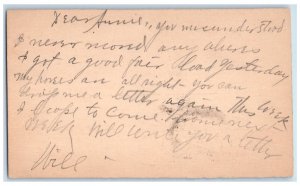 Dear Annie, you misunderstood
I never moved any
I got a good fair load yesterday
my horses all right you can
me a letter again this week
I hope to come home next
week Will write you a letter
Will